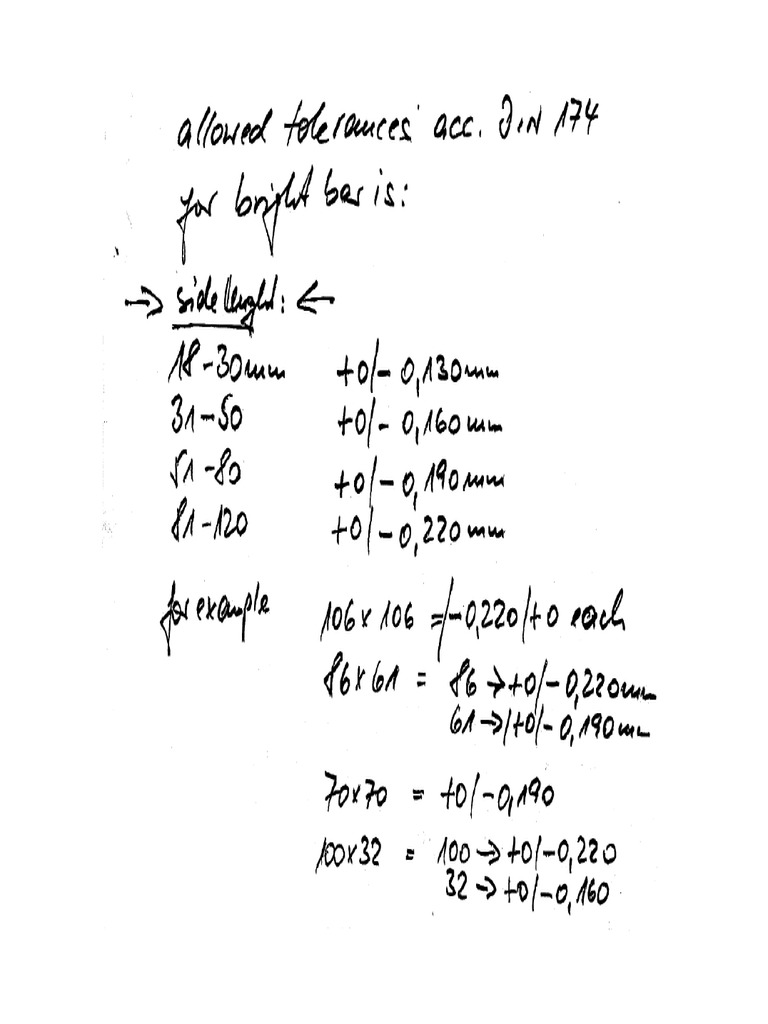 allowed tolerances acc. DIN 174
for bright bar is:
→ side lenght: ←
18-30mm +0/- 0,130mm
31-50 +0/- 0,160mm
51-80 +0/- 0,190mm
81-120 +0/- 0,220mm
for example 106x106 =/-0,220/+0 each
86x61 = 86 → +0/-0,220mm
61 → /+0/-0,190mm
70x70 = +0/-0,190
100x32 = 100 → +0/-0,220
32 → +0/-0,160